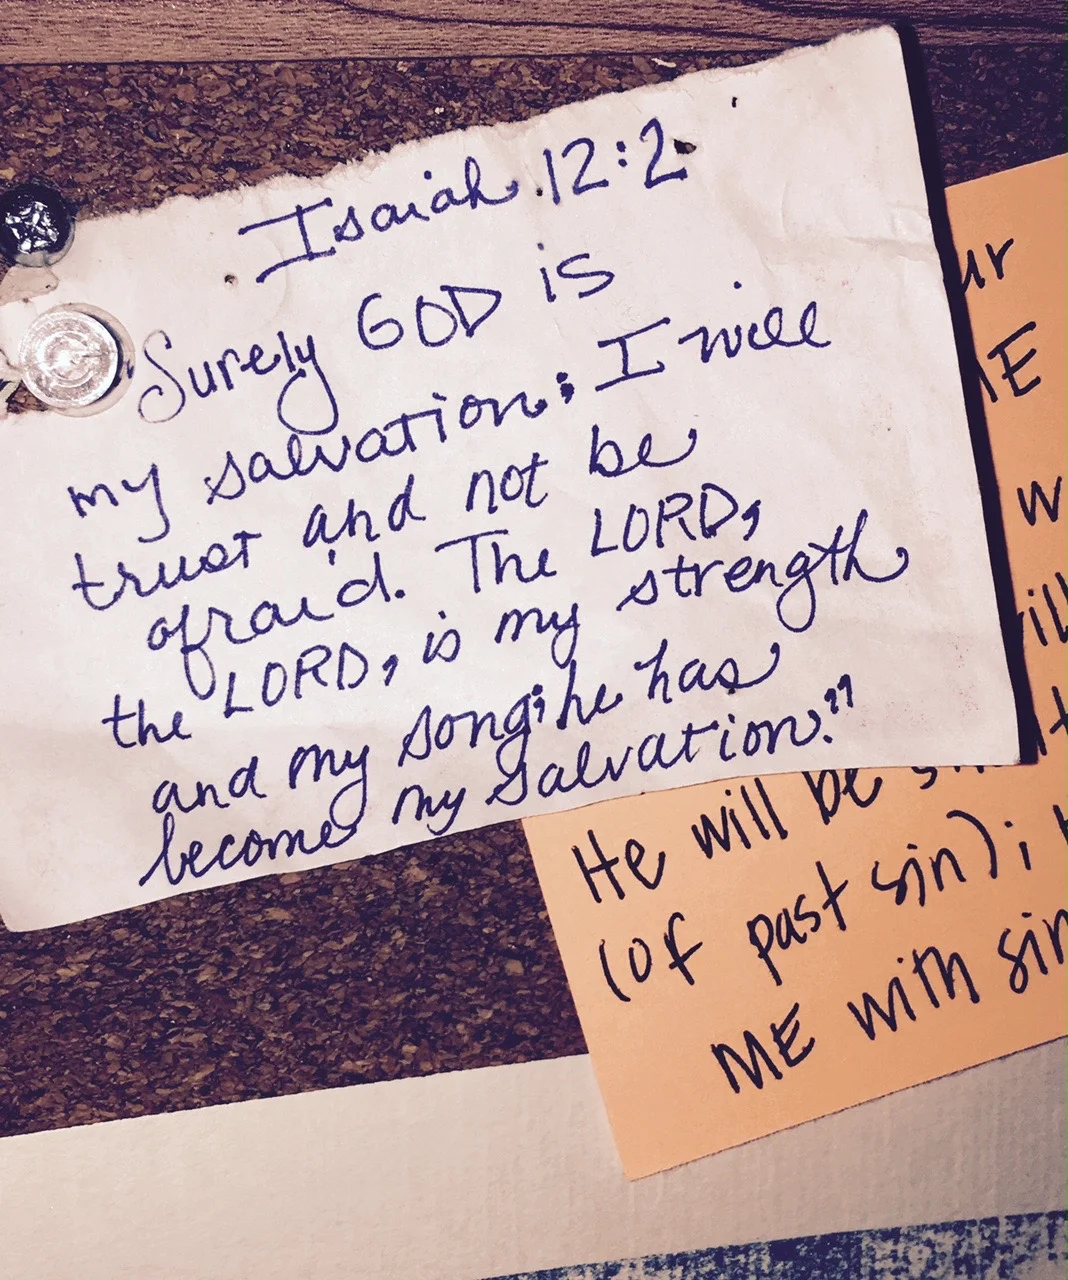 Isaiah 12:2
Surely GOD is
my salvation; I will
trust and not be
afraid. The LORD,
the LORD, is my strength
and my song; he has
become my salvation."
He will be
(of past sin);
ME with